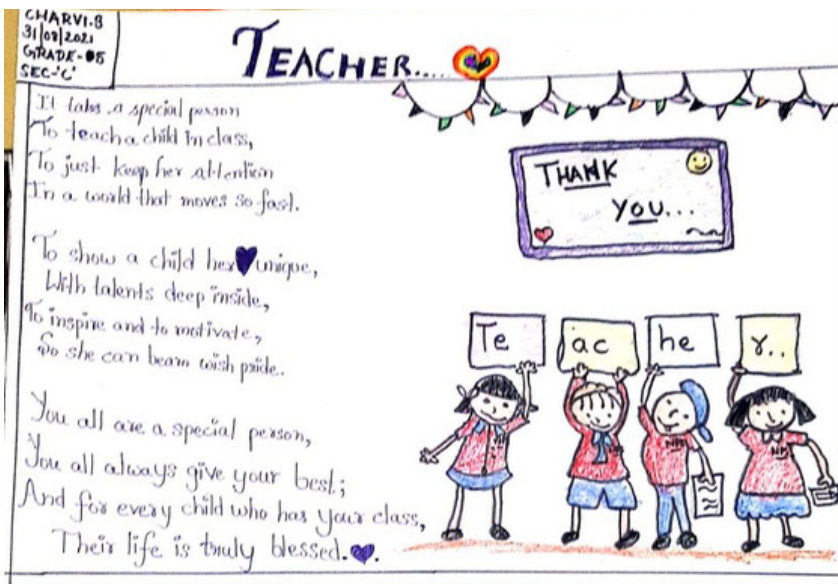 CHARVI.S
31|08|2021
GRADE-05
SEC-'C'
TEACHER....
It takes a special person
To teach a child in class,
To just keep her attention
In a world that moves so fast.
To show a child her unique,
With talents deep inside,
To inspire and to motivate,
So she can beam wish pride.
You all are a special person,
You all always give your best;
And for every child who has your class,
Their life is truly blessed.
THANK
YOU...
Te ac he r..